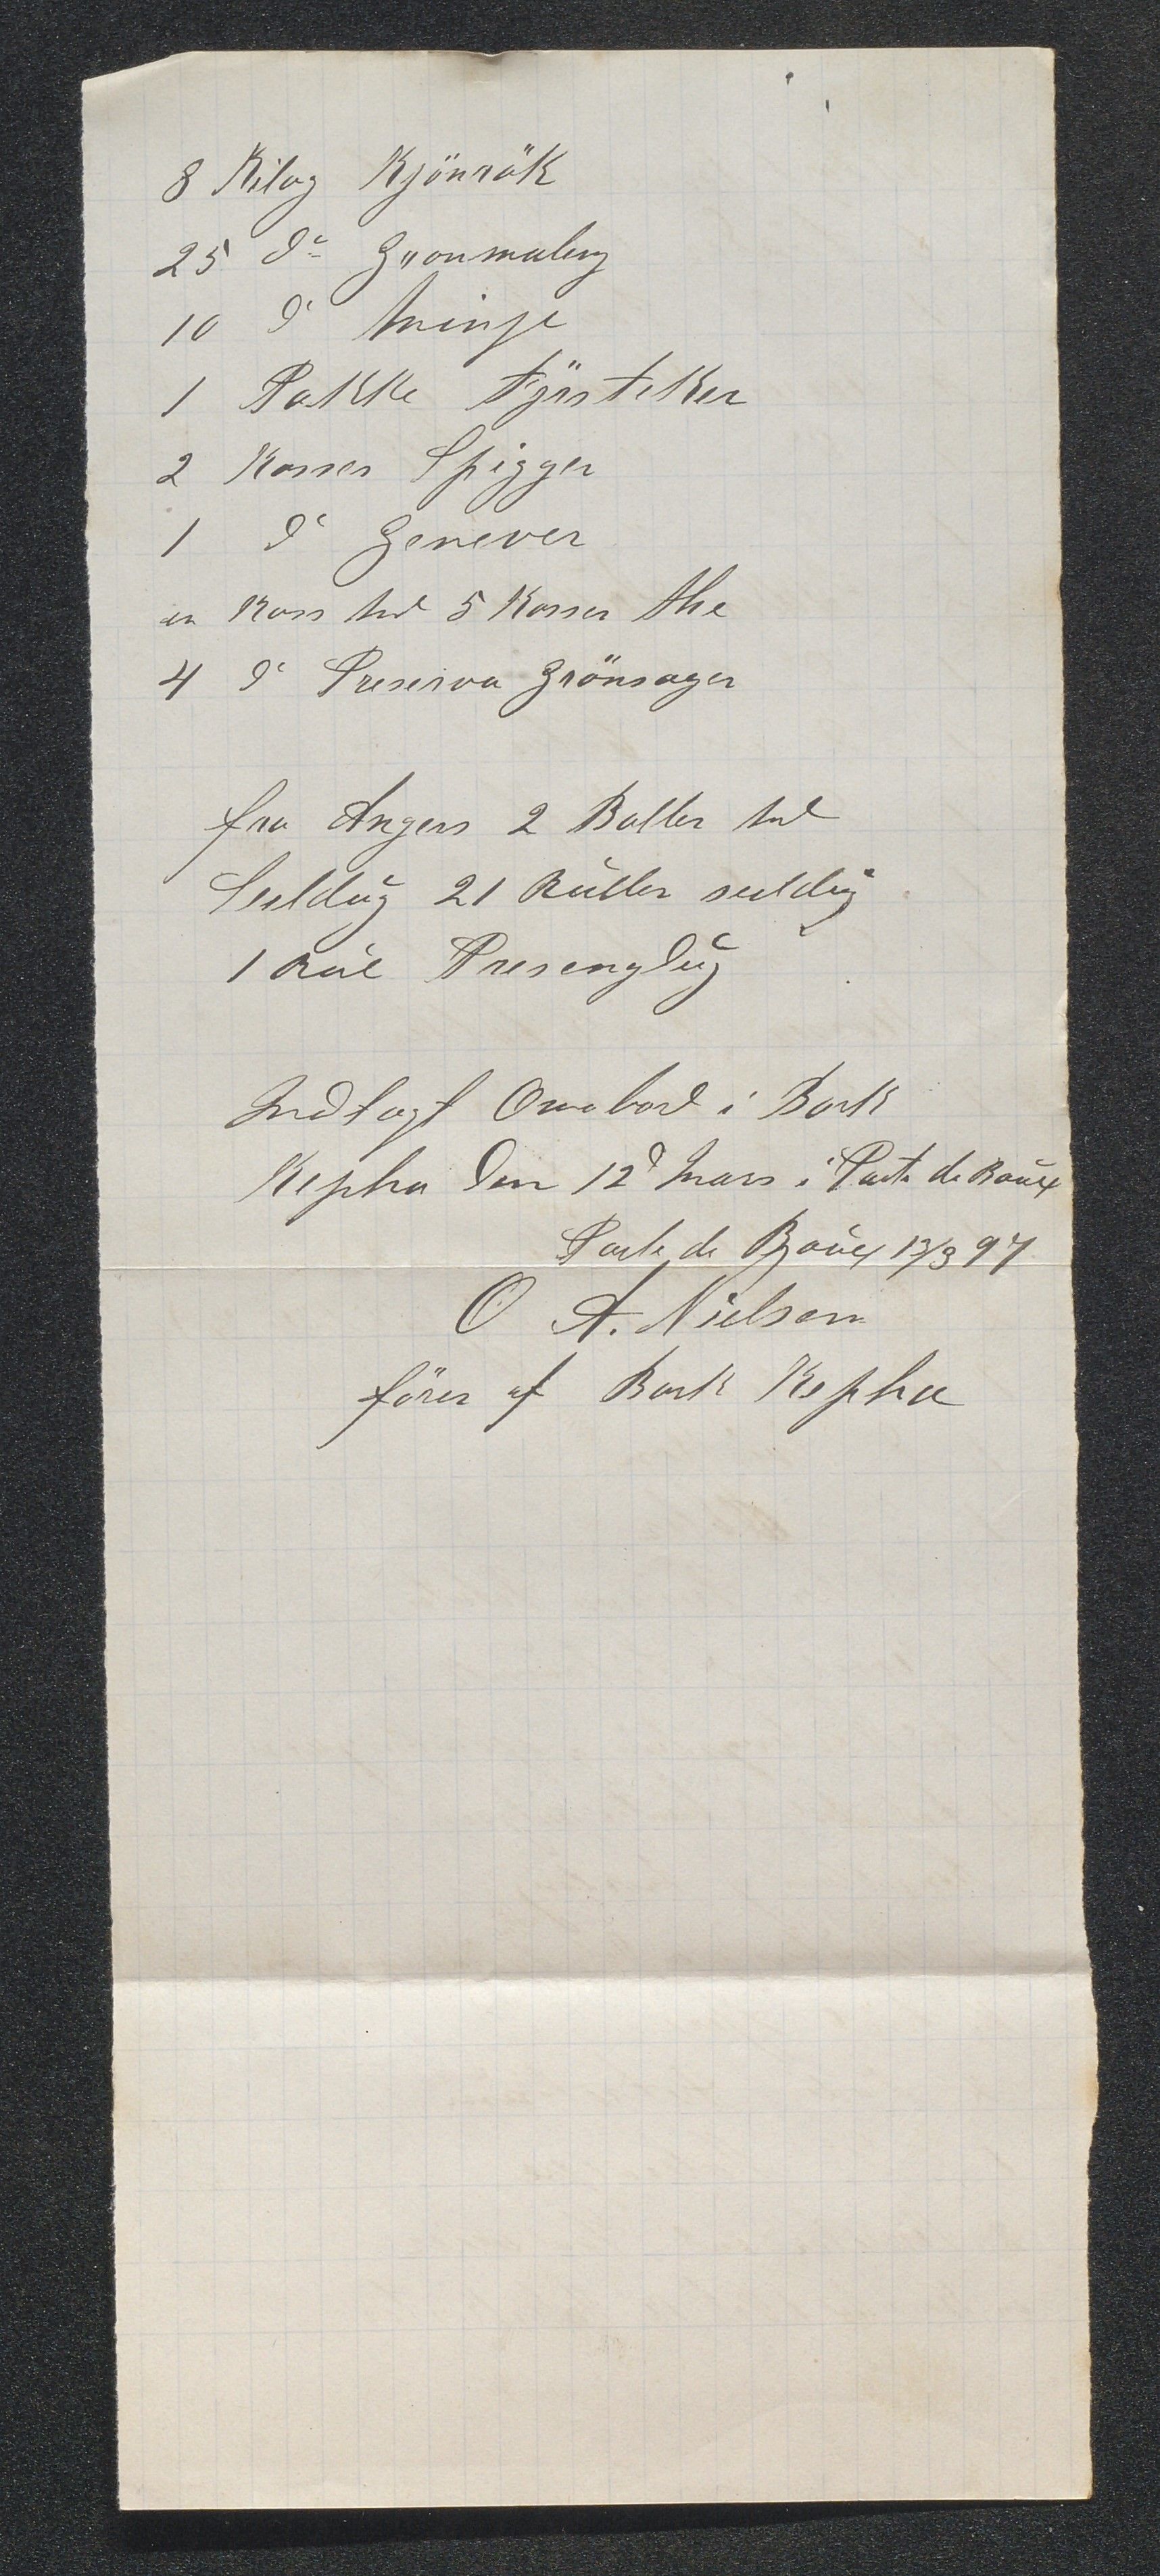 8 Kilog Kjönrök
25 do Grönmaling
10 do Minje
1 Pakke Fyrsteker
2 Kasser Spigger
1 do Genever
en Kass med 5 Kasser the
4 do Preserva Grönsager
fra Angers 2 Baller med
Seildug 21 Ruller seildug
1 Rul Presengdug
Indtagt Ombord i Bark
Kepha den 12d Mars i Porte de Boüex
Porte de Boüex 13/3 97
O A. Nielsen
förer af Bark Kepha